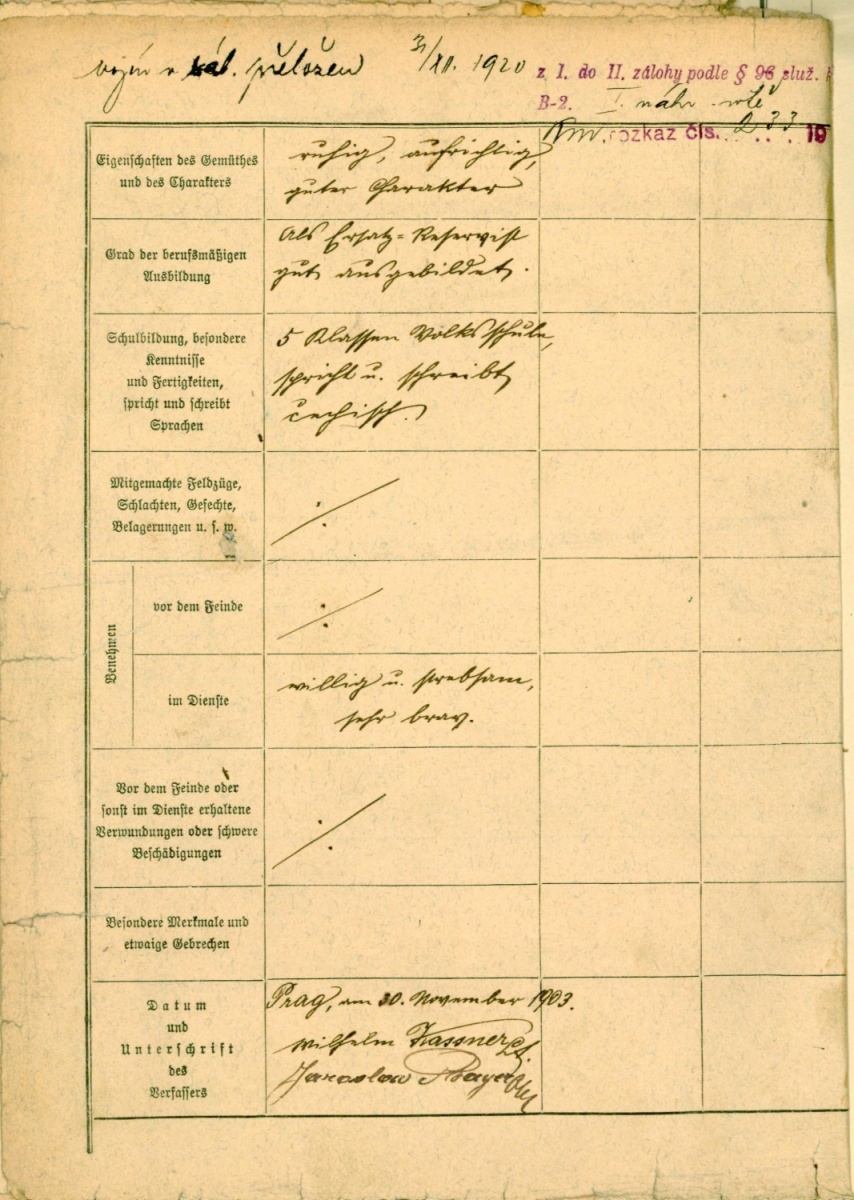 vojín v zál. přeložen 31/XII. 1920 z I. do II. zálohy podle § 96 služ.
B-2. I. náhr.
rozkaz čís. 233 19
Eigenschaften des Gemüthes
und des Charakters
ruhig, aufrichtig,
guter Charakter
Grad der berufsmäßigen
Ausbildung
Als Ersatz-Reservist
gut ausgebildet.
Schulbildung, besondere
Kenntnisse
und Fertigkeiten,
spricht und schreibt
Sprachen
5 Klassen Volksschule,
spricht u. schreibt
čechisch.
Mitgemachte Feldzüge,
Schlachten, Gefechte,
Belagerungen u. s. w.
Benehmen
vor dem Feinde
im Dienste
willig u. strebsam,
sehr brav.
Vor dem Feinde oder
sonst im Dienste erhaltene
Verwundungen oder schwere
Beschädigungen
Besondere Merkmale und
etwaige Gebrechen
Datum
und
Unterschrift
des
Verfassers
Prag, am 30. November 1903.
Wilhelm Kassner
Jaroslav Bayer